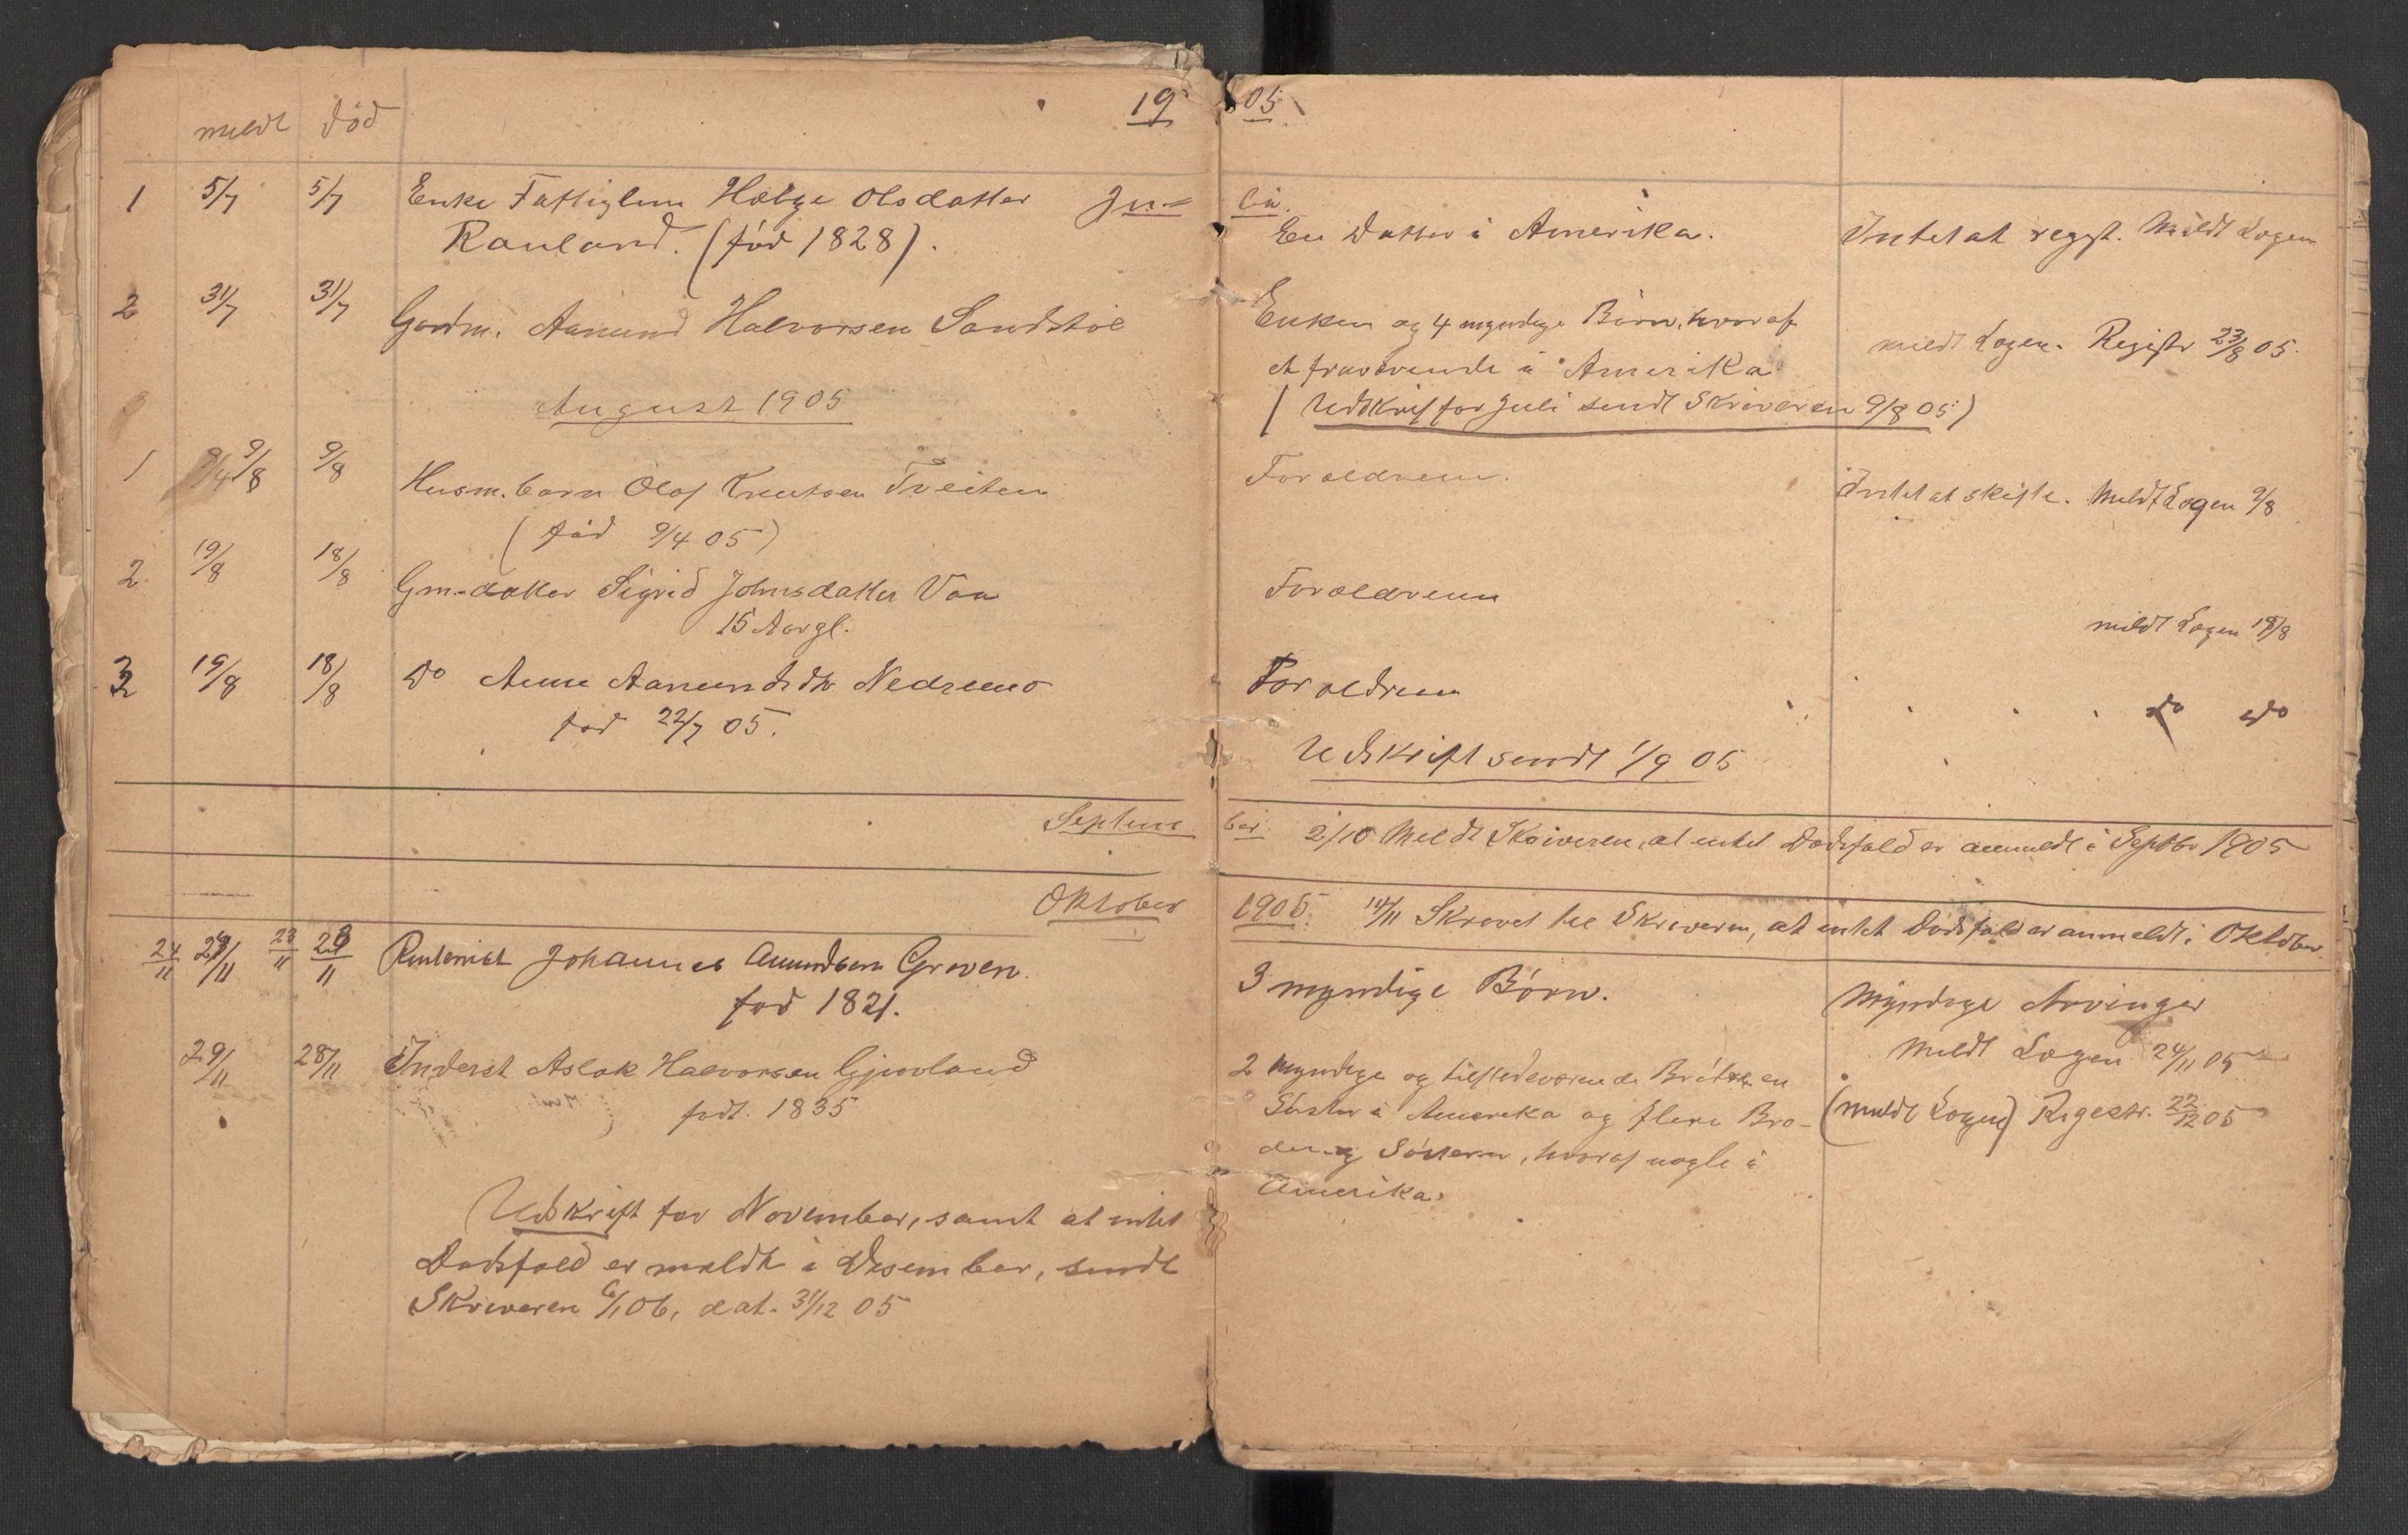 meldt død 19 05
Juli.
1 5/7 5/7 Enke Fattiglem Helge Olsdatter
Rauland. (fød 1828).
En Datter i Amerika.
Intet at regist. Meldt Logen
2 31/7 31/7 Gardm. Aanund Halvorsen Sandstøl
Enken og 4 myndige Børn, hvoraf
et fraværende i Amerika
meldt Logen. Registr 23/8 05.
August 1905
(Udskrift for Juli sendt Skriveren 9/8 05)
1 9/8 9/8 Husm. barn Olaf Knutsen Tveiten
(fød 9/4 05)
Forældrene.
Intet at skifte. Meldt Logen 9/8
2 19/8 18/8 Gm-datter Sigrid Johnsdatter Vaa
15 Aar gl.
Forældrene
meldt Logen 19/8
3 19/8 18/8 Do Anne Aanundsdtr Nedremo
fød 22/7 05.
Forældrene
do do
Udskrift sendt 1/9 05
September 2/10 Meldt Skriveren, at intet Dødsfald er anmeldt i Septbr 1905
Oktober 1905. 14/11 Skrevet til Skriveren, at intet Dødsfald er anmeldt i Oktober.
24/11 23/11 Johannes Amundsen Groven.
fød 1821.
3 myndige Børn.
Myndige Arvinger
Meldt Logen 24/11 05
29/11 28/11 Inderst Aslak Halvorsen Gjuvland
født. 1835
2 Myndige og tilstedeværende en
Søster i Amerika og flere Bro-
der og Søstern, hvoraf nogle i
Amerika.
(meldt Logen) Regestr. 22/12 05
Udskrift for November, samt at intet
Dødsfald er meldt i Desember, sendt
Skriveren 6/1 06, dat. 31/12 05